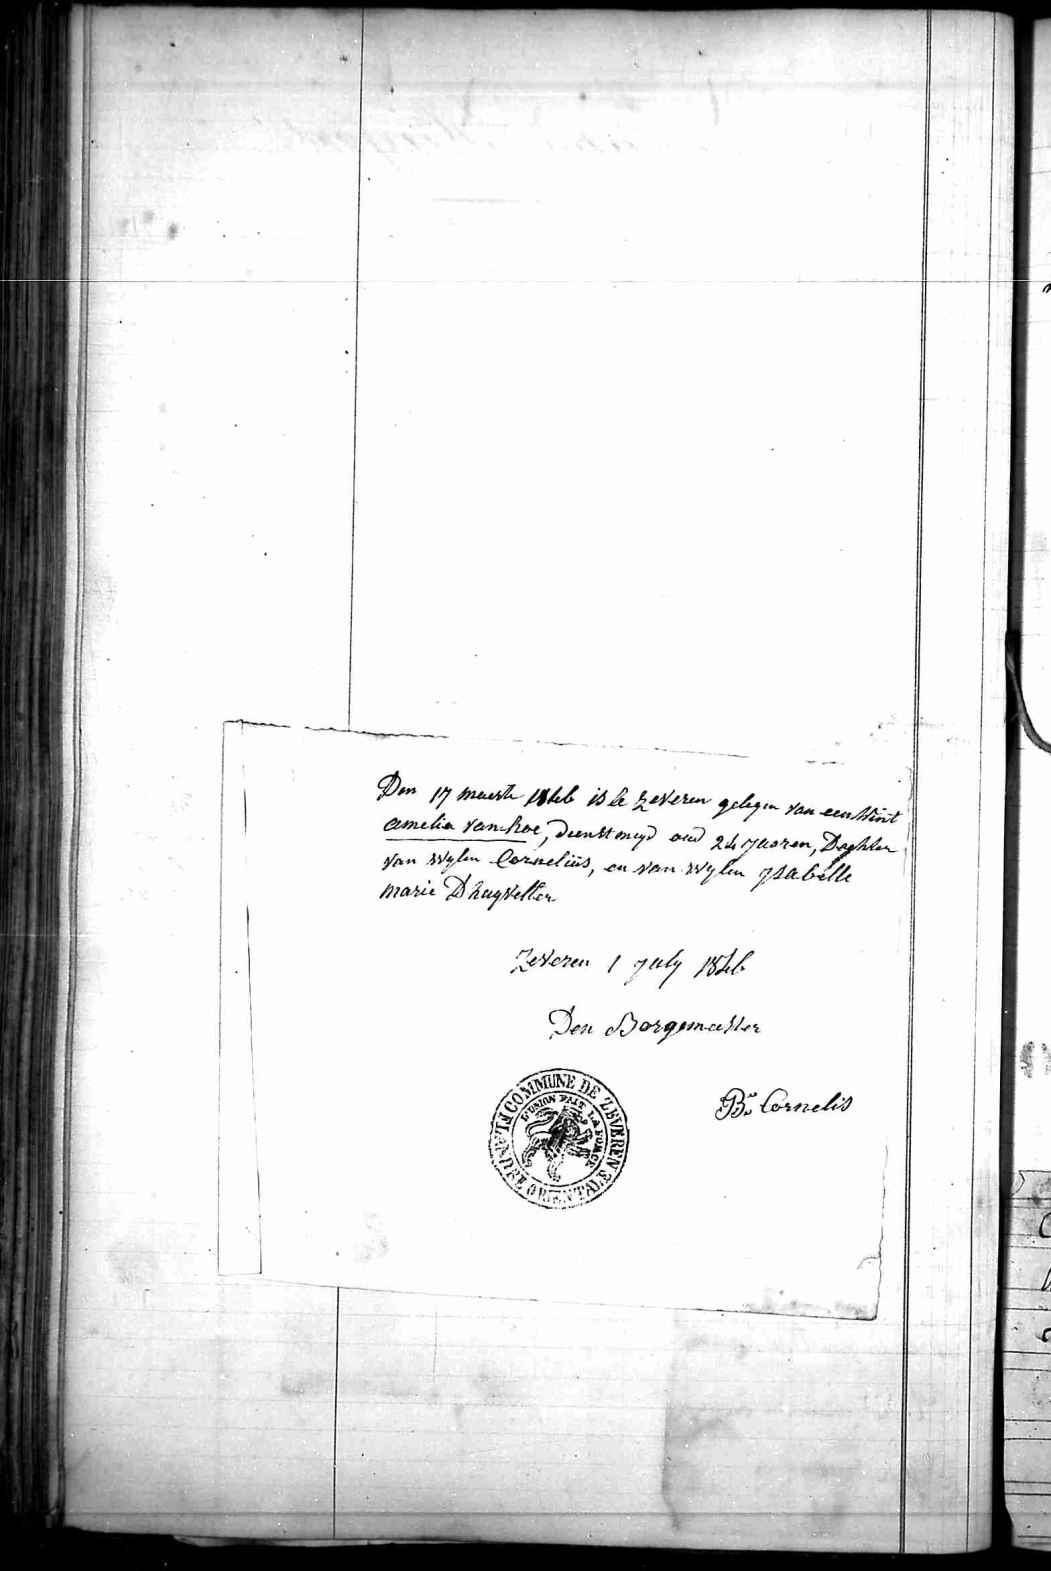 Den 17 meerte 1846 is te Zeveren gelegen van een kint
amelia vanhoe, Dienstmeyd oud 24 jaaren, Doghter
van wylen Cornelius, en van wylen ysabelle
marie Dhuyvetter
Zeveren 1 july 1846
Den Borgemester
Bu Cornelis
COMMUNE DE ZEVEREN
FLANDRE ORIENTALE
L'UNION FAIT LA FORCE